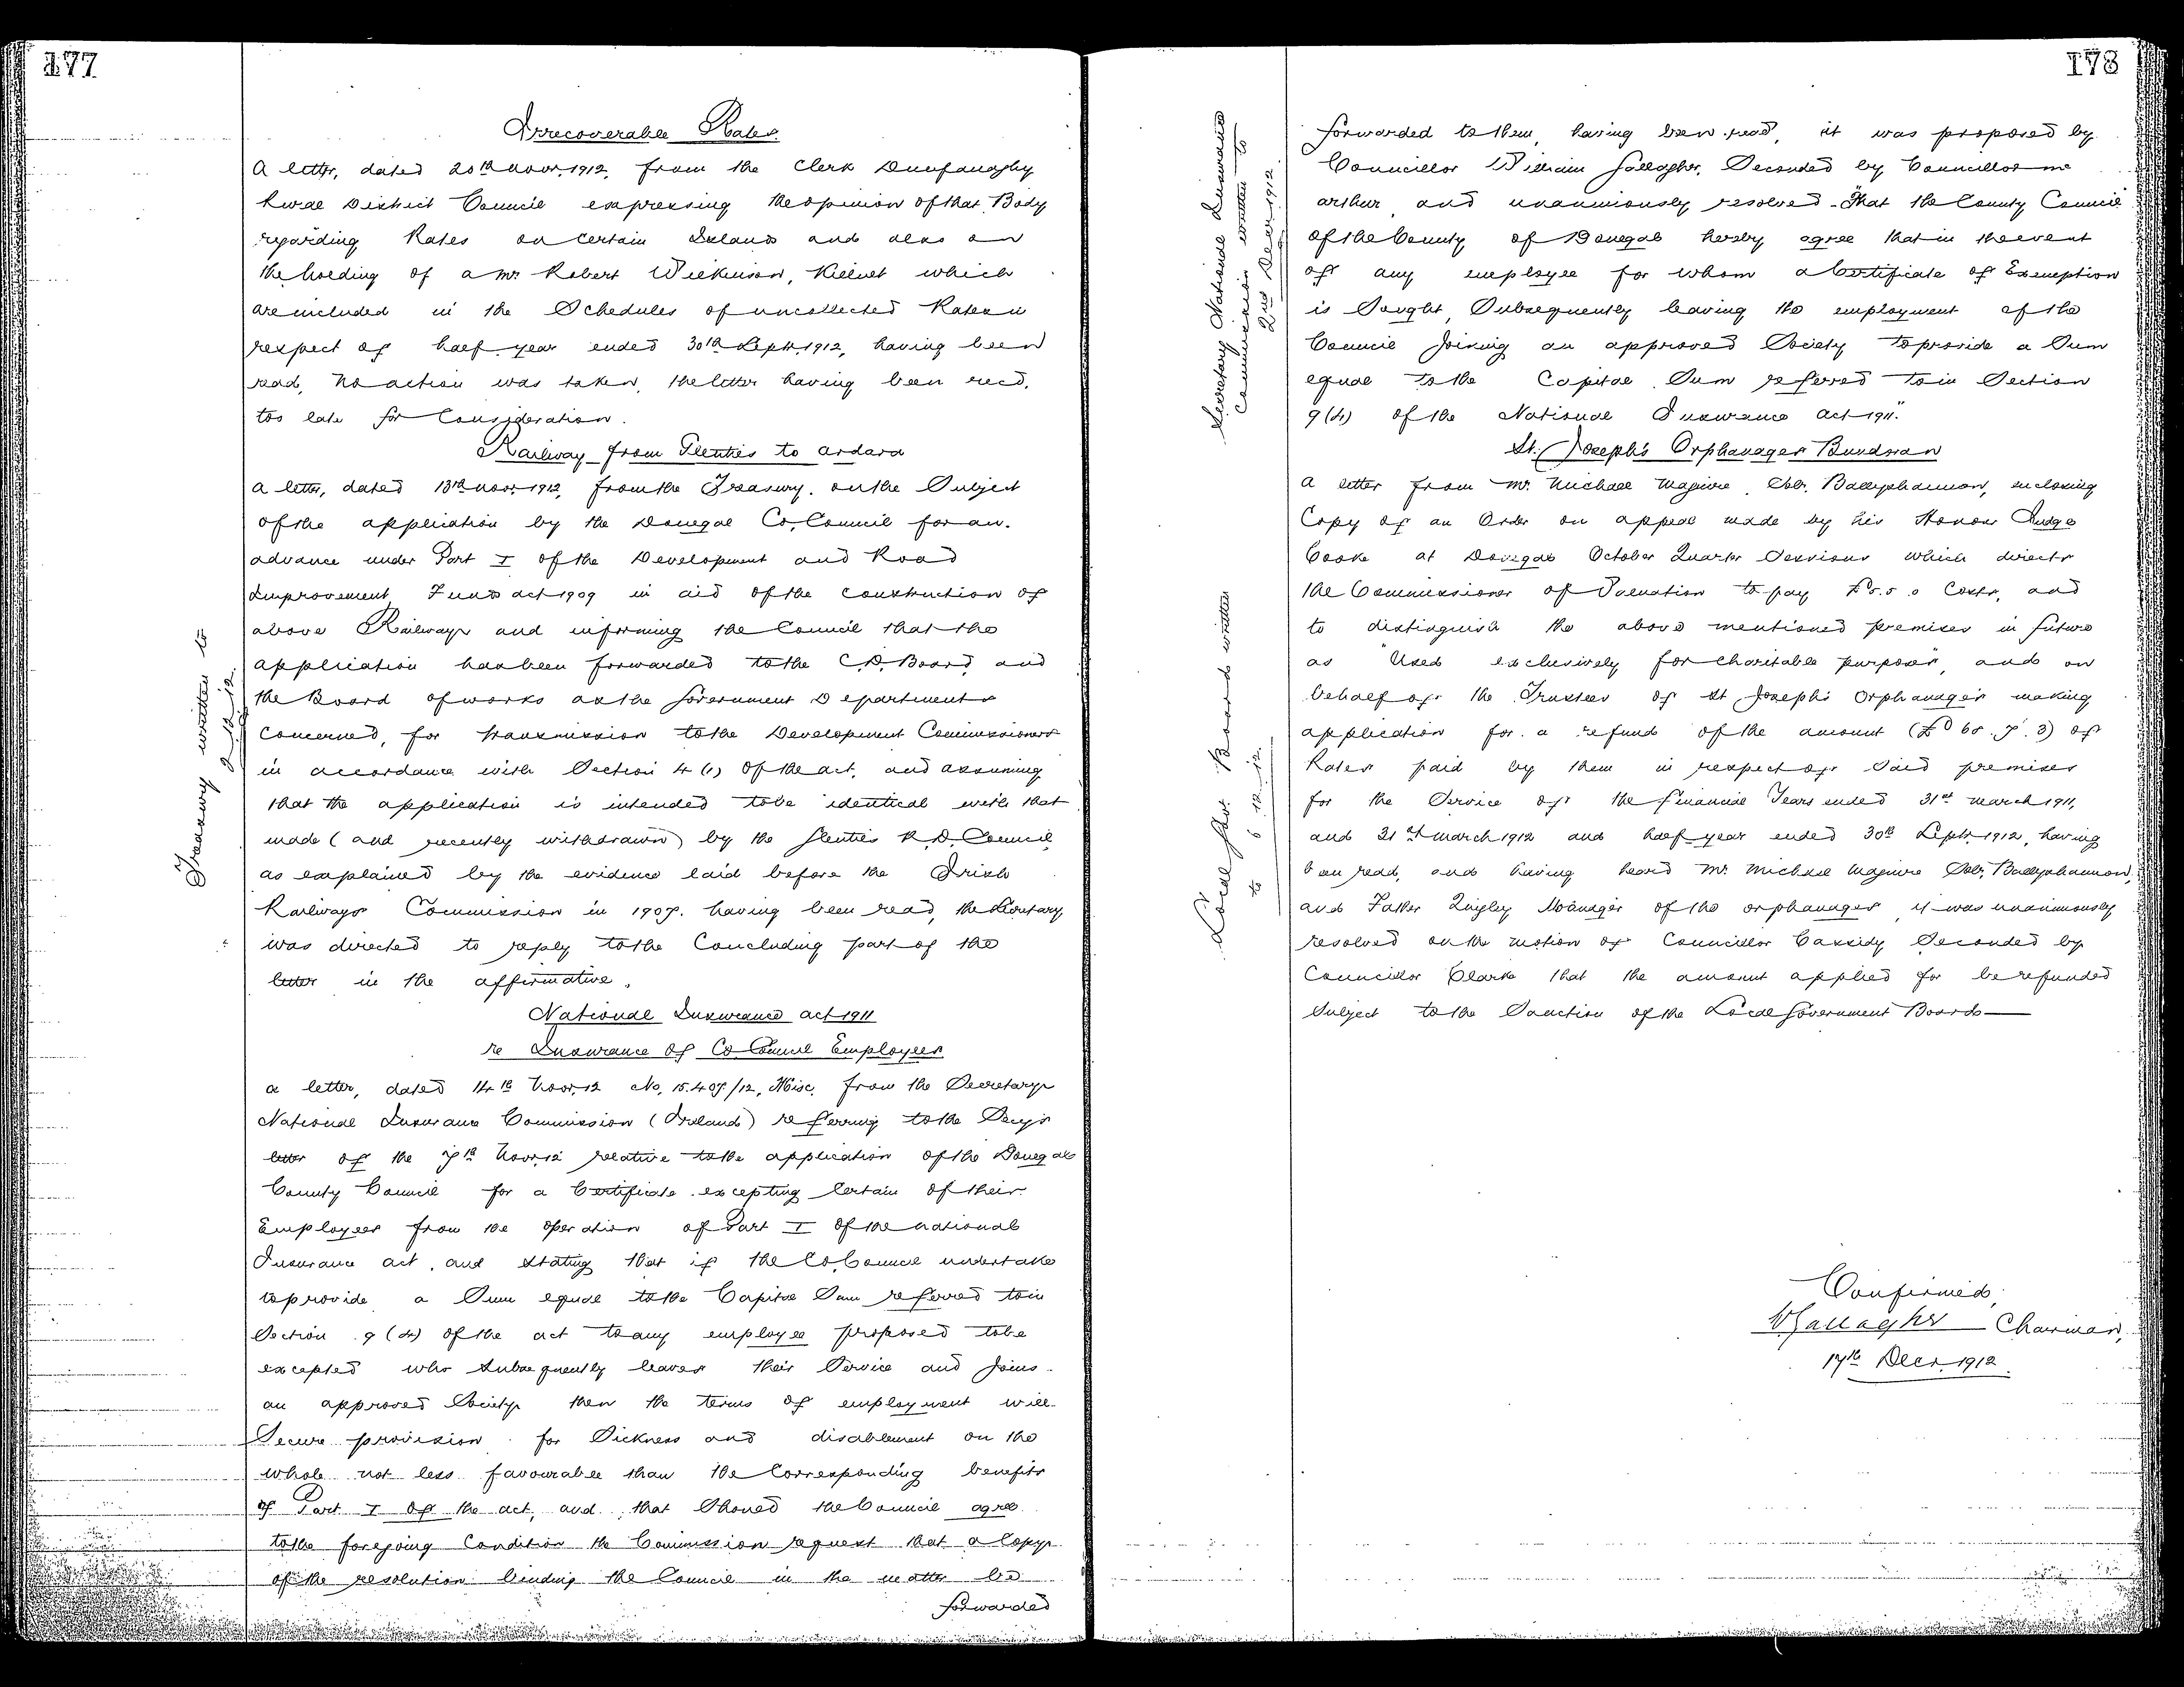 177
Irrecoverable Rates.
A letter, dated 20th Novr. 1912, from the Clerk Dunfanaghy
Rural District Council expressing the opinion of that Body
regarding Rates on certain Islands and also on
the holding of a Mr. Robert Wilkinson, which
are included in the Schedules of uncollected Rates in
respect of half year ended 30th Septr. 1912, having been
read, no action was taken, the letter having been recd.
too late for Consideration.
Railway from Glenties to Ardara
Treasury written to
2.12.12.
A letter, dated 13th Novr. 1912, from the Treasury. on the Subject
of the application by the Donegal Co. Council for an.
advance under Part I of the Development and Road
Improvement Funds Act 1909 in aid of the construction of
above Railway and informing the Council that the
application has been forwarded to the C.D. Board and
the Board of Works as the Government Departments
Concerned, for transmission to the Development Commissioners
in accordance with Section 4 (1) of the Act, and assuming
that the application is intended to be identical with that
made (and recently withdrawn) by the Glenties R.D. Council
as explained by the evidence laid before the Irish
Railways Commission in 1907. having been read, the Secretary
was directed to reply to the Concluding part of the
letter in the affirmative.
National Insurance Act 1911
re Insurance of Co Council Employees
A letter, dated 14th Novr. 12 No. 15.407/12, Misc. from the Secretary
National Insurance Commission (Ireland) referring to the Secy's
letter of the 7th Novr. 12 relative to the application of the Donegal
County Council for a Certificate excepting Certain of their
Employees from the operation of Part I of the National
Insurance Act, and stating that if the Co. Council undertake
to provide a Sum equal to the Capital Sum referred to in
Section 9 (4) of the Act to any employee proposed to be
excepted who subsequently leaves their Service and Joins
an approved Society then the terms of employment will
Secure provision for Sickness and disablement on the
whole not less favourable than the Corresponding benefits
of Part I of the Act, and that Should the Council agree
to the foregoing Condition the Commission request that a Copy
of the resolution binding the Council in the matter be
forwarded
178
Secretary National Insurance
Commission written to
2nd Decr. 1912
forwarded to them, having been read, it was proposed by
Councillor William Gallagher, Seconded by Councillor Mc
Arthur and unanimously resolved - "That the County Council
of the County of Donegal hereby agree that in the event
of any employee for whom a Certificate of Exemption
is Sought, Subsequently leaving the employment of the
Council Joining an approved Society to provide a Sum
equal to the Capital Sum referred to in Section
9 (4) of the National Insurance Act 1911."
St. Joseph's Orphanage Bundoran
Local Gov. Board written
to 6.12.12.
A letter from Mr. Michael Maguire, Solr. Ballyshannon, enclosing
Copy of an Order on appeal made by his Honour Judge
Cooke at Donegal October Quarter Sessions which directs
the Commissioner of Valuation to pay £5.5.0 Costs, and
to distinguish the above mentioned premises in future
as "Used exclusively for Charitable purposes", and on
behalf of the Trustees of St Joseph's Orphanage making
application for a refund of the amount (£60.7.3) of
Rates paid by them in respect of Said premises
for the Service of the Financial Years ended 31st March 1911,
and 31st March 1912 and half year ended 30th Septr. 1912, having
been read, and having heard Mr. Michael Maguire Solr. Ballyshannon,
and Father Quigley Manager of the Orphanage, it was unanimously
resolved on the motion of Councillor Cassidy Seconded by
Councillor Clarke that the amount applied for be refunded
Subject to the Sanction of the Local Government Board
Confirmed,
W Gallagher Chairman,
17th Decr. 1912.